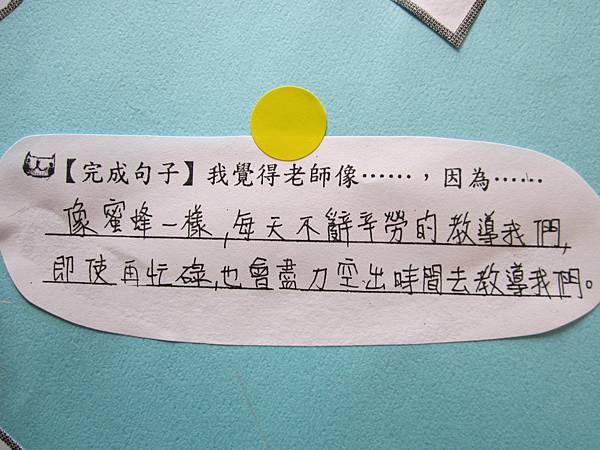 【完成句子】我覺得老師像⋯⋯，因為⋯⋯
像蜜蜂一樣,每天不辭辛勞的教導我們,
即使再忙碌,也會盡力空出時間去教導我們。